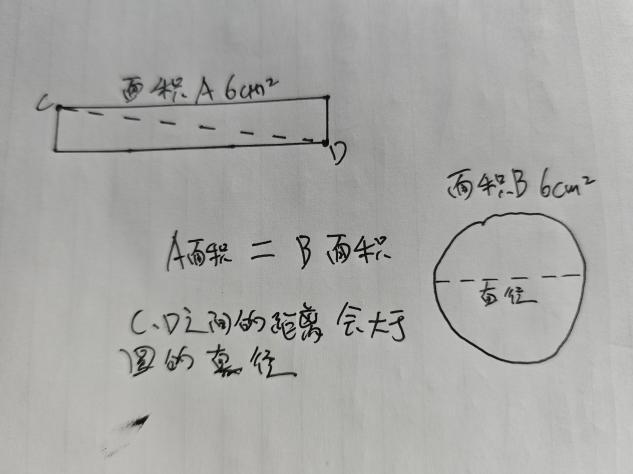 面积 A 6cm²
C
D
面积B 6cm²
直径
A面积 = B 面积
C、D之间的距离会大于
圆的直径